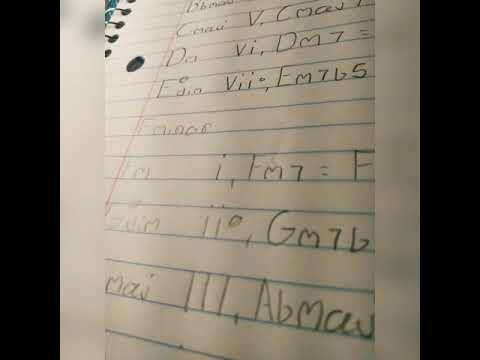 Abmaj
Cmaj V, Cmaj7
Dm vi, Dm7 =
Edim vii°, Em7b5
Fminor
Fm i, Fm7 = F
Gdim ii°, Gm7b
maj III, Abmaj